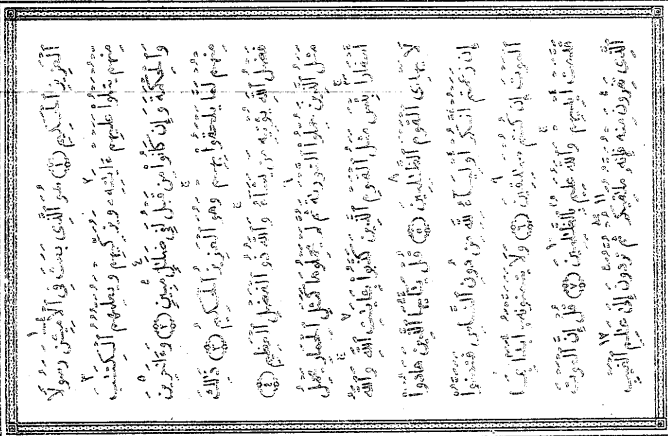 ٱلْعَزِيزِ ٱلْحَكِيمِ ﴿١﴾ هُوَ ٱلَّذِى بَعَثَ فِى ٱلْأُمِّيِّـۧنَ رَسُولًا
مِّنْهُمْ يَتْلُوا۟ عَلَيْهِمْ ءَايَٰتِهِۦ وَيُزَكِّيهِمْ وَيُعَلِّمُهُمُ ٱلْكِتَٰبَ
وَٱلْحِكْمَةَ وَإِن كَانُوا۟ مِن قَبْلُ لَفِى ضَلَٰلٍ مُّبِينٍ ﴿٢﴾ وَءَاخَرِينَ
مِنْهُمْ لَمَّا يَلْحَقُوا۟ بِهِمْ وَهُوَ ٱلْعَزِيزُ ٱلْحَكِيمُ ﴿٣﴾ ذَٰلِكَ
فَضْلُ ٱللَّهِ يُؤْتِيهِ مَن يَشَآءُ وَٱللَّهُ ذُو ٱلْفَضْلِ ٱلْعَظِيمِ ﴿٤﴾
مَثَلُ ٱلَّذِينَ حُمِّلُوا۟ ٱلتَّوْرَىٰةَ ثُمَّ لَمْ يَحْمِلُوهَا كَمَثَلِ ٱلْحِمَارِ يَحْمِلُ
أَسْفَارًۢا بِئْسَ مَثَلُ ٱلْقَوْمِ ٱلَّذِينَ كَذَّبُوا۟ بِـَٔايَٰتِ ٱللَّهِ وَٱللَّهُ
لَا يَهْدِى ٱلْقَوْمَ ٱلظَّٰلِمِينَ ﴿٥﴾ قُلْ يَٰٓأَيُّهَا ٱلَّذِينَ هَادُوٓا۟
إِن زَعَمْتُمْ أَنَّكُمْ أَوْلِيَآءُ لِلَّهِ مِن دُونِ ٱلنَّاسِ فَتَمَنَّوُا۟
ٱلْمَوْتَ إِن كُنتُمْ صَٰدِقِينَ ﴿٦﴾ وَلَا يَتَمَنَّوْنَهُۥٓ أَبَدًۢا بِمَا
قَدَّمَتْ أَيْدِيهِمْ وَٱللَّهُ عَلِيمٌۢ بِٱلظَّٰلِمِينَ ﴿٧﴾ قُلْ إِنَّ ٱلْمَوْتَ
ٱلَّذِى تَفِرُّونَ مِنْهُ فَإِنَّهُۥ مُلَٰقِيكُمْ ثُمَّ تُرَدُّونَ إِلَىٰ عَٰلِمِ ٱلْغَيْبِ